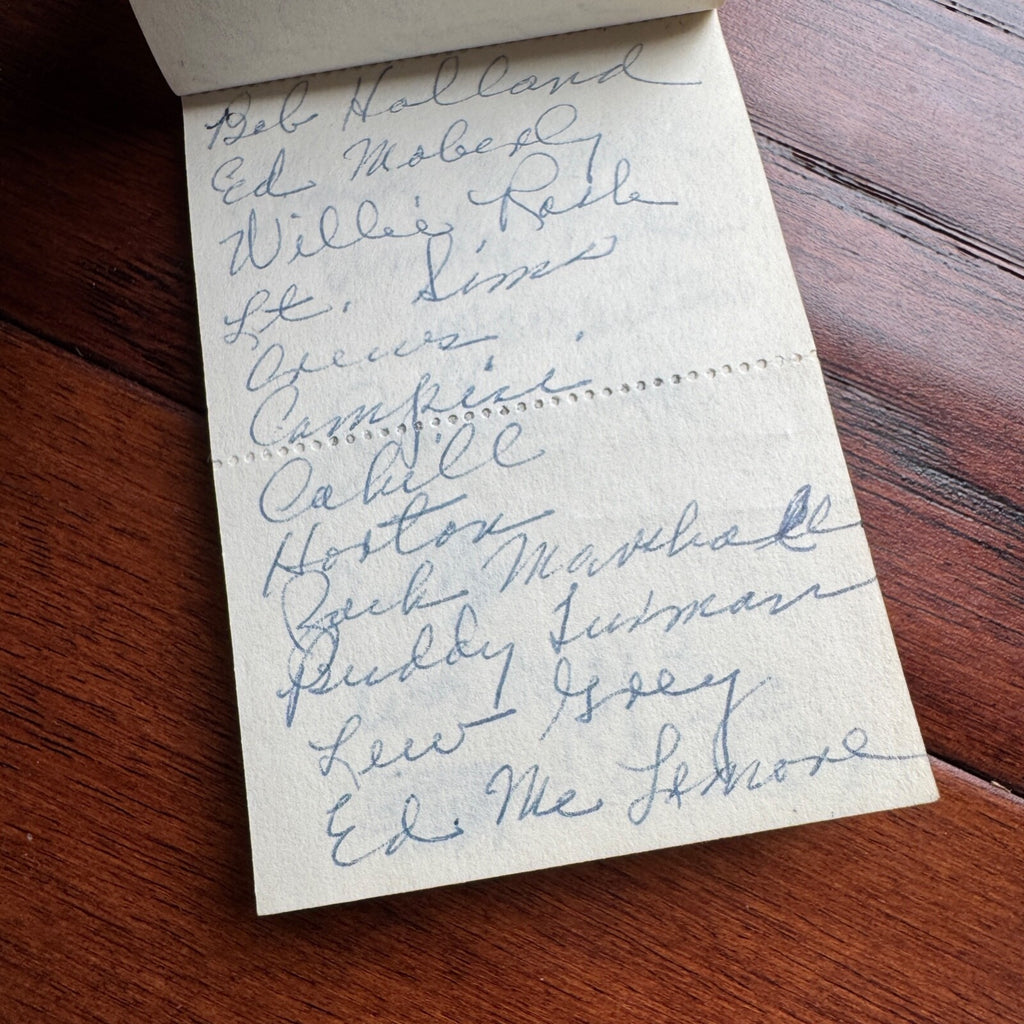 Bob Holland
Ed Moberly
Willie
Lt. Sims
Crews
Campini
Cahill
Horton
Marshall
Buddy
Lew Grey
Ed. Mc Lemore